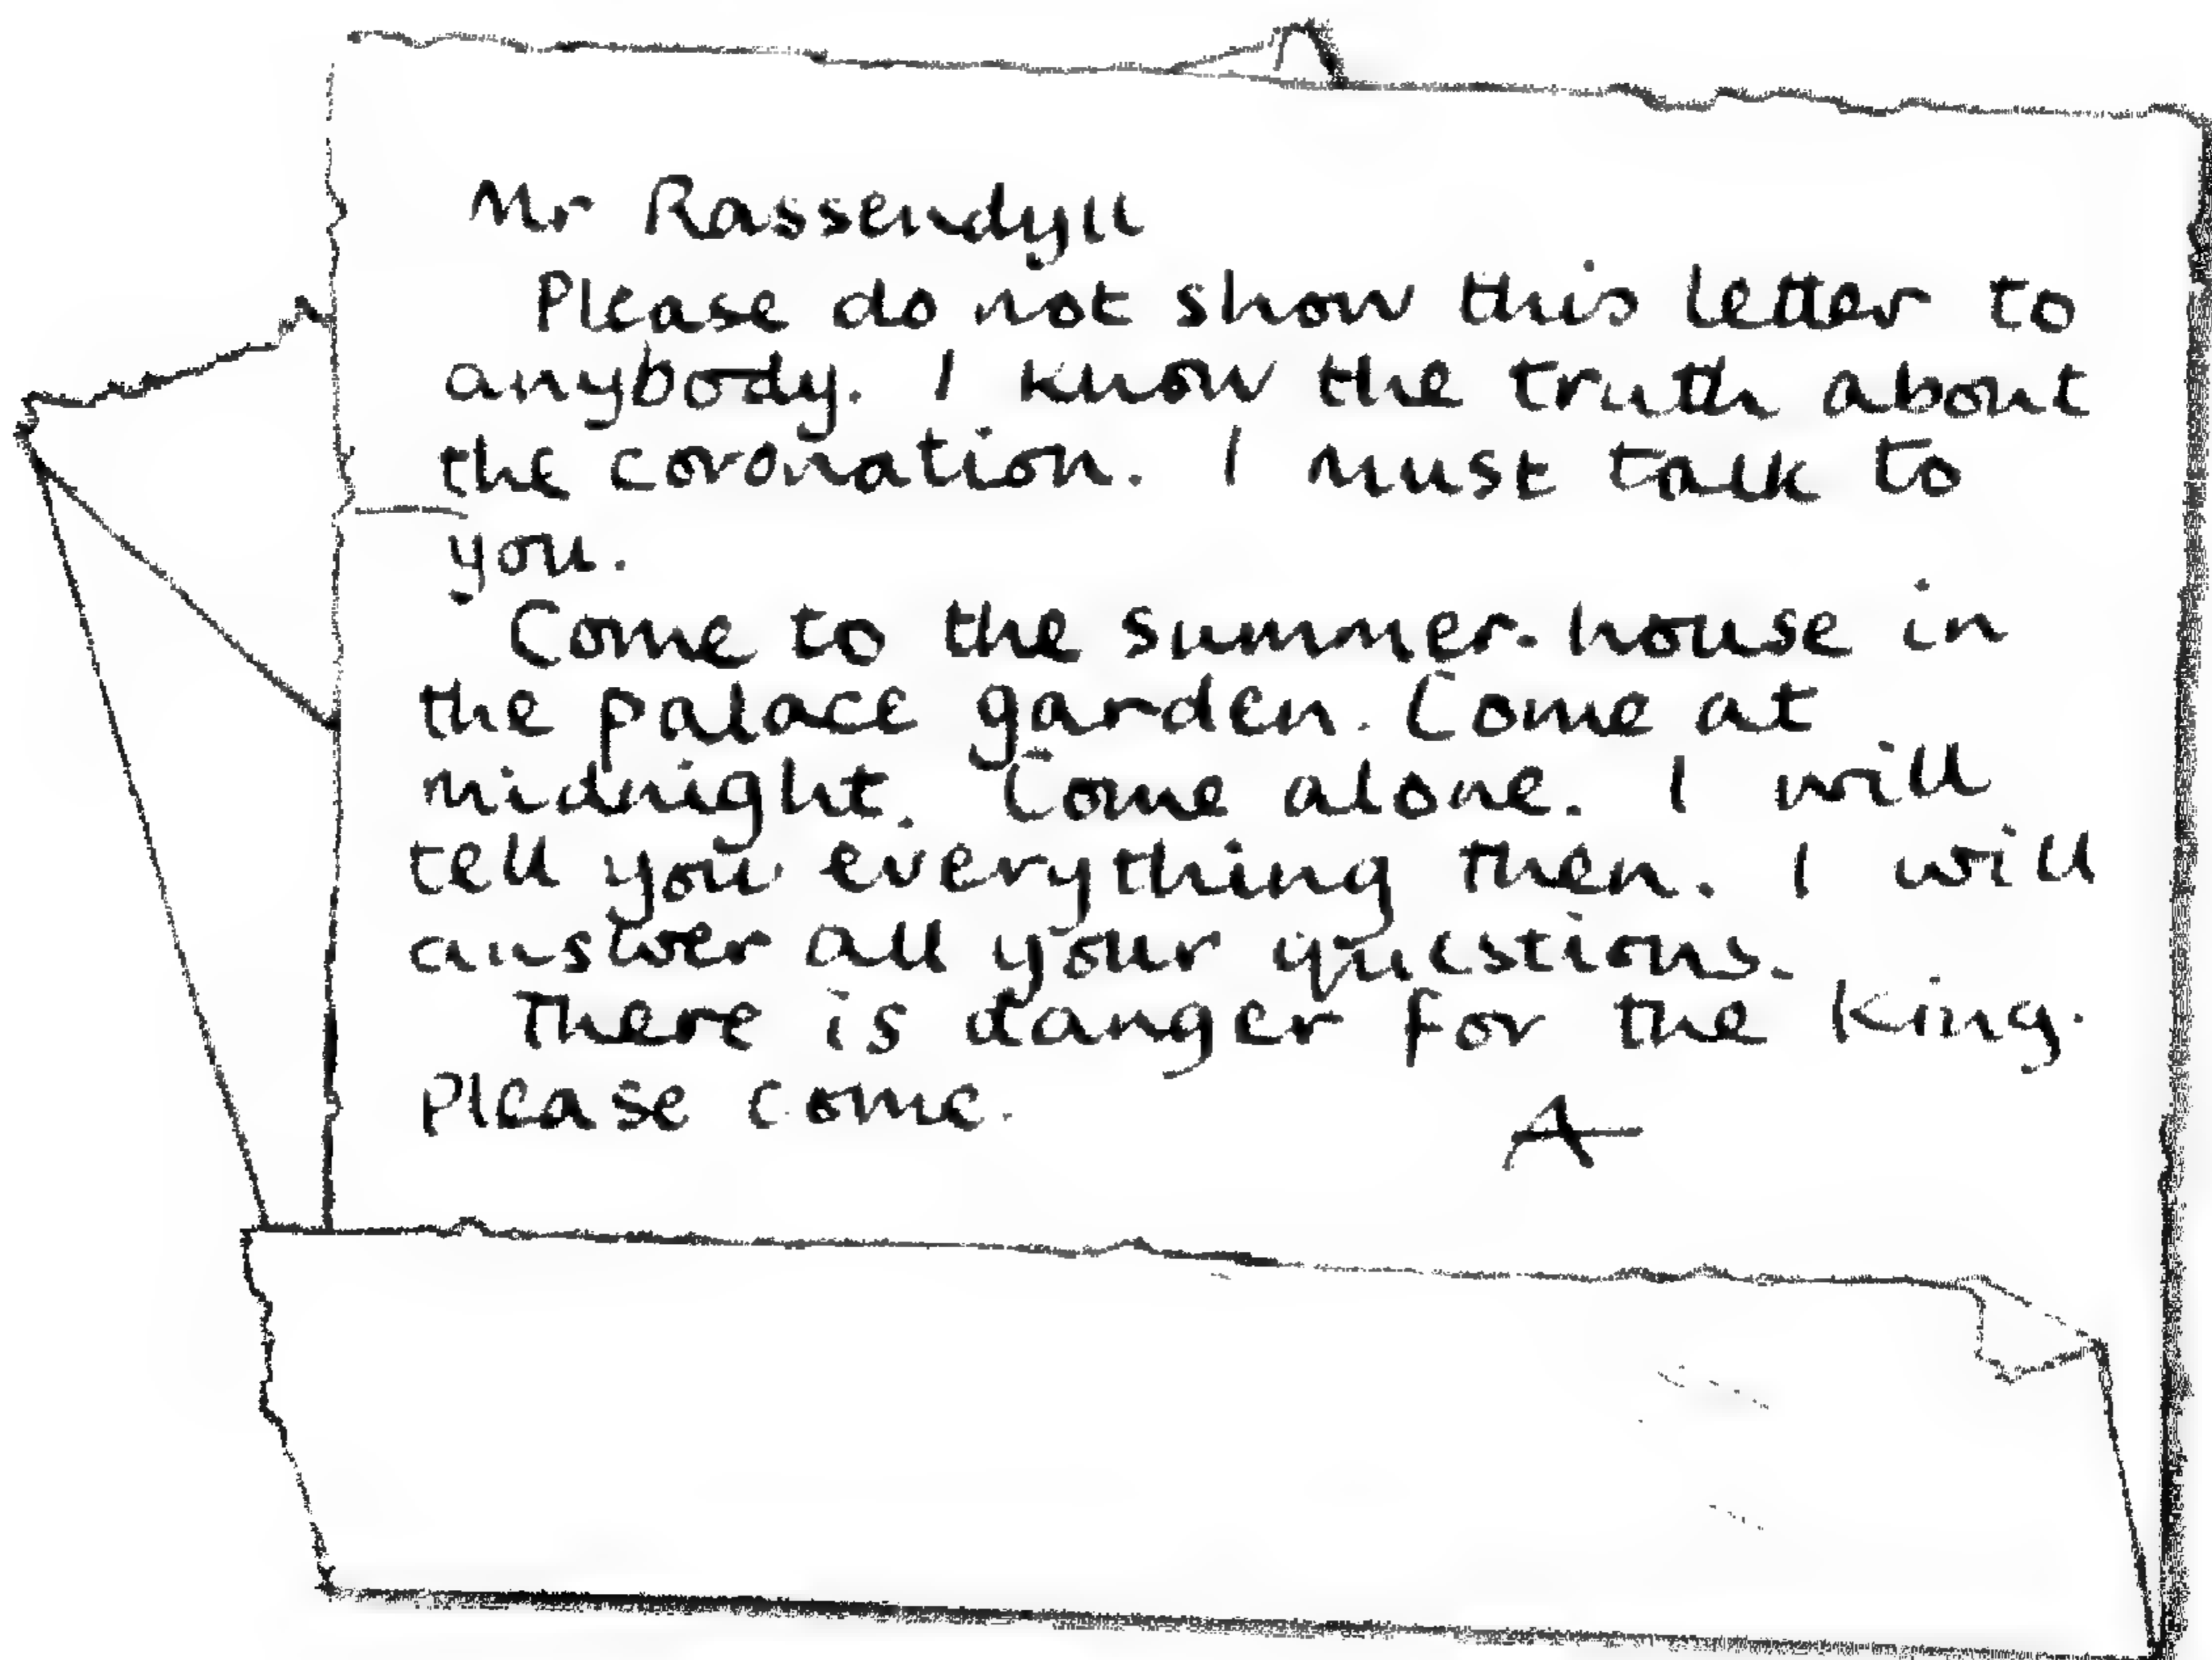 Mr Rassendyll
Please do not show this letter to
anybody. I know the truth about
the coronation. I must talk to
you.
Come to the summer-house in
the palace garden. Come at
midnight. Come alone. I will
tell you everything then. I will
answer all your questions.
There is danger for the King.
Please come.
A